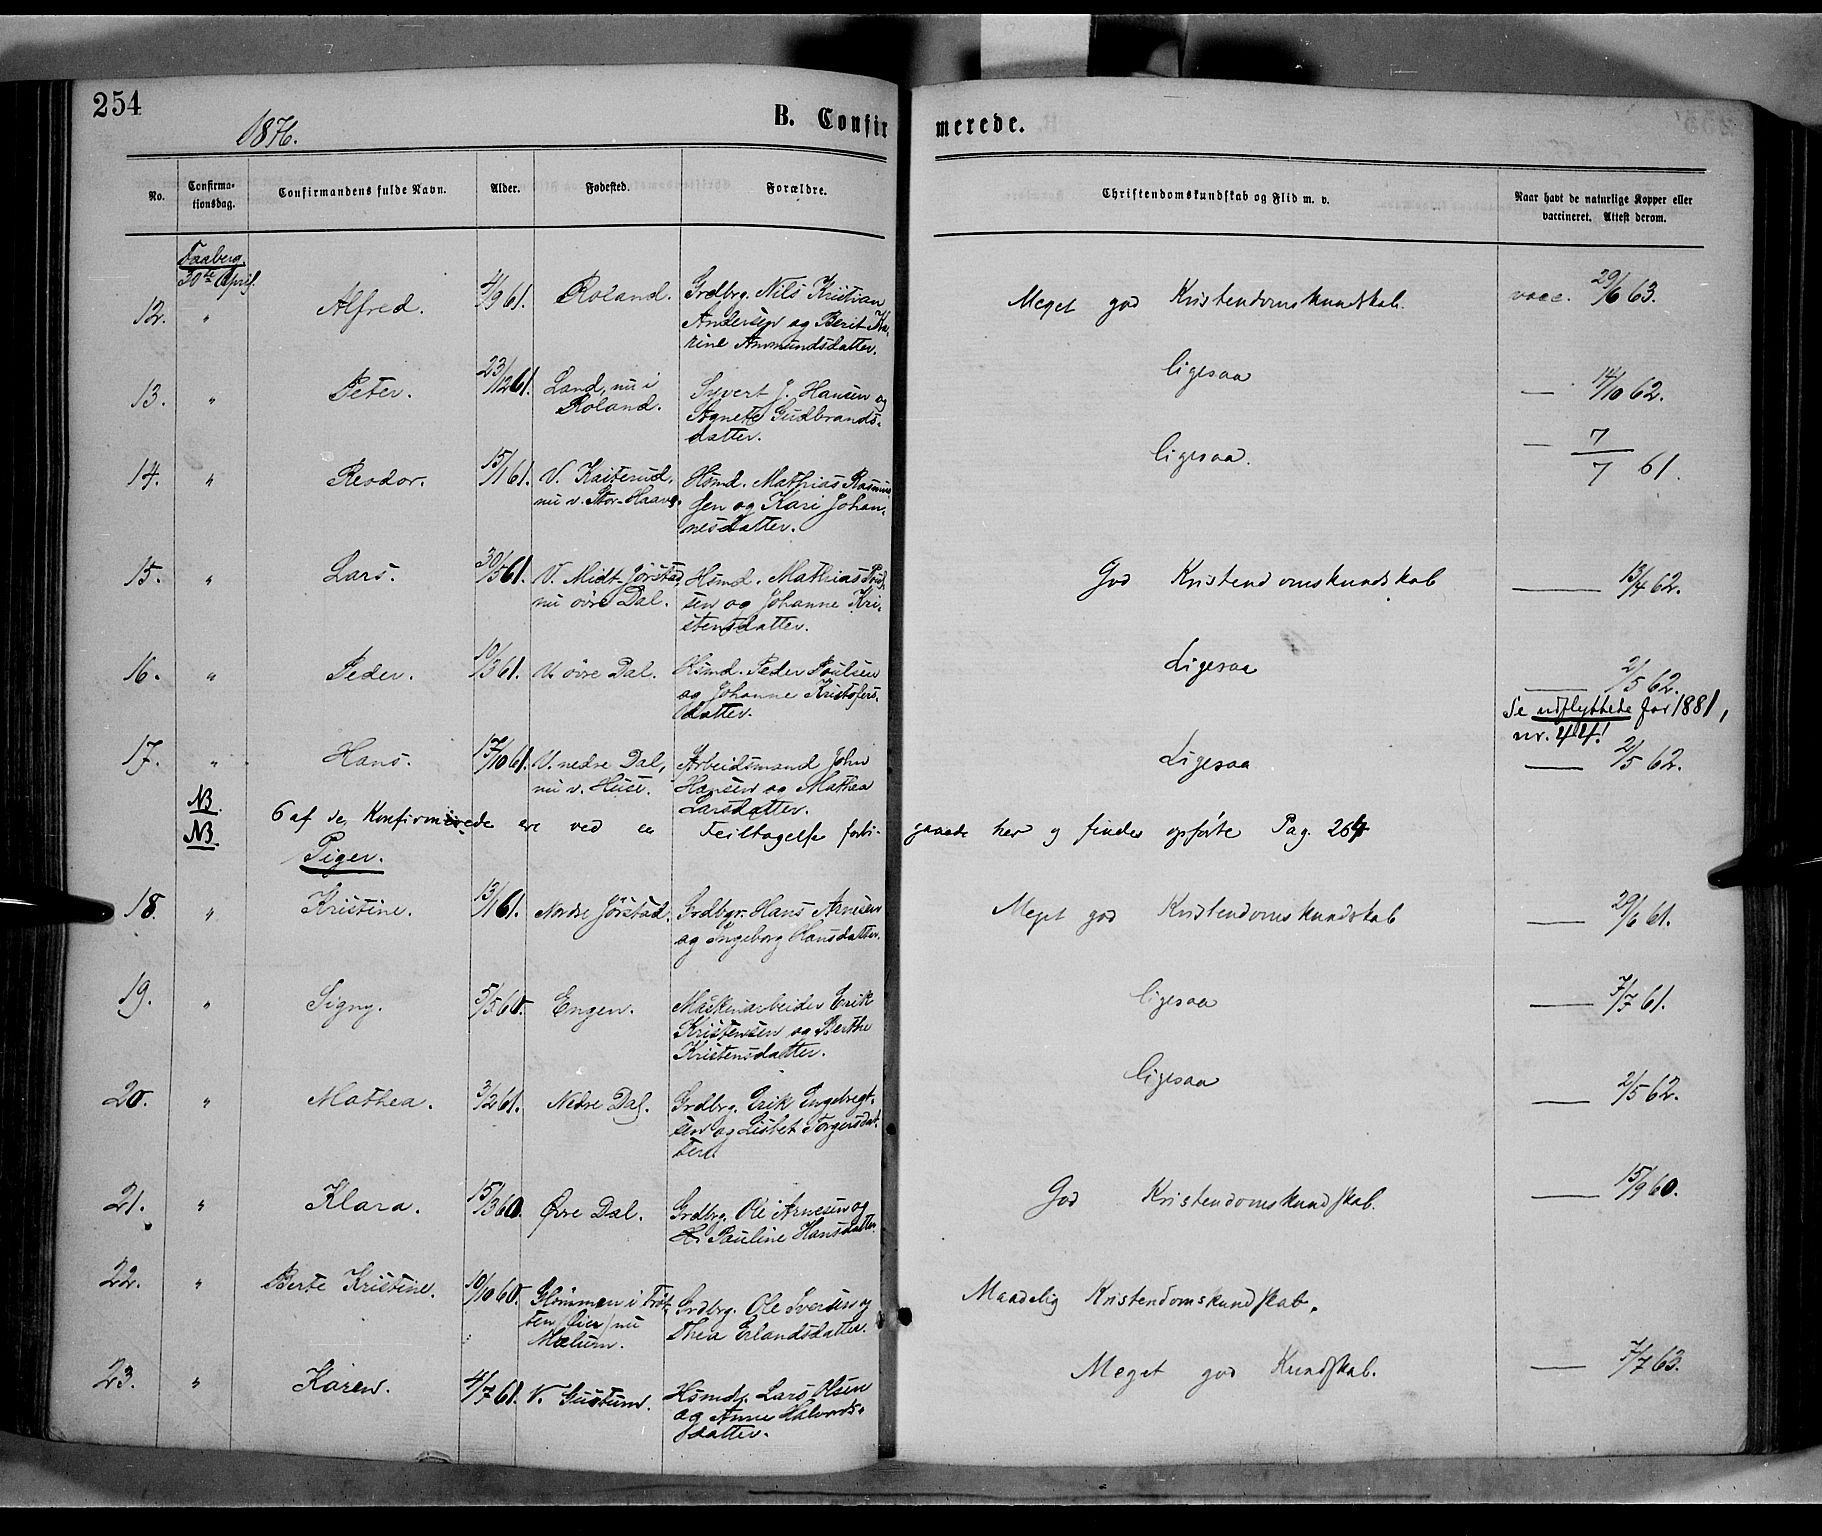 254
1876.
B. Confirmerede.
No.
Confirmationsdag.
Confirmandens fulde Navn.
Alder.
Fødested.
Forældre.
Christendomskundskab og Flid m. v.
Naar havt de naturlige Kopper eller
vaccineret. Attest derom.
Faaberg.
30te April.
12. " Alfred. 4/9 61. Roland. Grdbrg. Nils Kristian
Andersen og Berit Ka-
rine Amundsdatter.
Meget god Kristendomskundskab. vacc. 29/6 63.
13. " Peter. 23/12 61. Land, nu i
Roland.
Syvert J. Hansen og
Agnete Gudbrands-
datter.
ligesaa — 14/10 62.
14. " Reodor. 15/1 61. V. Kaiterud,
nu v. Stor-Haave.
Hsmd. Mathias Rasmus-
sen og Kari Johan-
nesdatter.
ligesaa. — 7/7 61.
15. " Lars. 30/5 61. V. Midt-Jørstad
nu øvre Dal.
Hsmd. Mathias Poul-
sen og Johanne Kri-
stensdatter.
God Kristendomskundskab — 13/4 62.
16. " Peder. 10/3 61. V. øvre Dal. Hsmd. Peder Poulsen
og Johanne Kristofers-
datter.
Ligesaa — 2/5 62.
Se udflyttede for 1881,
nr. 44!
17. " Hans. 17/10 61. V. nedre Dal,
nu v. Huse.
Arbeidsmand John
Hansen og Mathea
Larsdatter.
Ligesaa — 2/5 62.
NB.
NB. 6 af de Konfirmerede ere ved en Feiltagelse forbi- gaaede her og findes opførte Pag. 264
Piger.
18. " Kristine. 13/1 61. Nordre Jørstad. Grdbgr. Hans Arnesen
og Ingeborg Hansdatter.
Meget god Kristendomskundskab — 29/6 61.
19. " Signy. 5/5 60. Engen. Maskinarbeider Erik
Kristensen og Berthe
Kristensdatter.
ligesaa — 7/7 61.
20. " Mathea. 3/2 61. Nedre Dal. Grdbrg. Erik Engebregt-
sen og Lisbet Torgersdat-
ter.
ligesaa — 2/5 62.
21. " Klara. 15/3 60. Øvre Dal. Grdbrg. Ole Arnesen og
Pauline Hansdatter.
God Kristendomskundskab. — 15/9 60.
22. " Berte Kristine. 10/10 60. Glömmen i Tröt-
ten /nu
Mælum.
Grdbrg. Ole Iversen og
Thea Erlandsdatter.
Maadelig Kristendomskundskab.
23. " Karen. 4/7 61. V. Gustum. Hsmd. Lars Olsen
og Anne Halvords-
datter.
Meget god Kundskab. — 7/7 63.